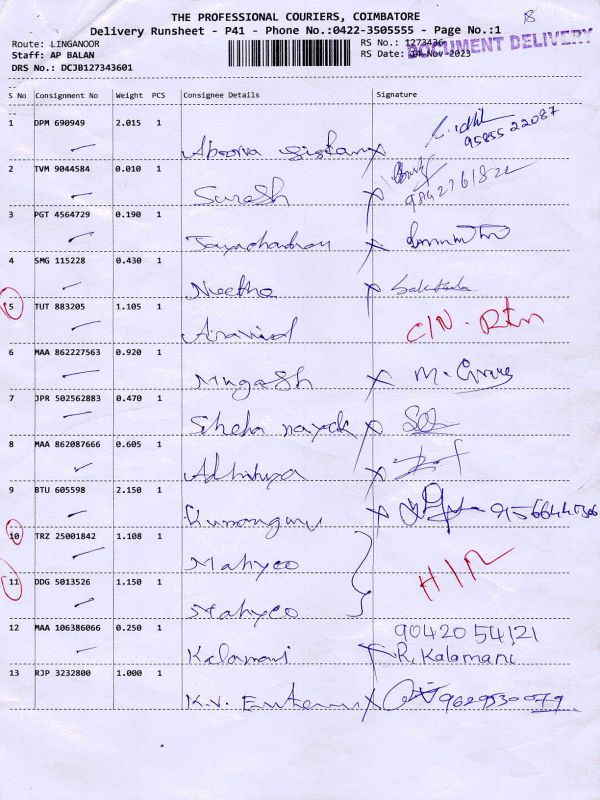 THE PROFESSIONAL COURIERS, COIMBATORE
Delivery Runsheet - P41 - Phone No.:0422-3505555 - Page No.:1
Route: LINGANOOR RS No.: 1273436
Staff: AP BALAN RS Date: 14-Nov-2023
DOCUMENT DELIVERY
DRS No.: DCJB127343601
S No Consignment No Weight PCS Consignee Details Signature
1 DPM 690949 2.015 1
95855 22087
2 TVM 9044584 0.010 1
Suresh
3 PGT 4564729 0.190 1
Jayachandran
4 SMG 115228 0.430 1
Neetha
5 TUT 883205 1.105 1
Aravind C/N. Rtn
6 MAA 862227563 0.920 1
Mugash
7 JPR 502562883 0.470 1
Sneha nayak
8 MAA 862087666 0.605 1
Adhithya
9 BTU 605598 2.150 1
10 TRZ 25001842 1.108 1
Mahyco
11 DDG 5013526 1.150 1
Mahyco
12 MAA 106386066 0.250 1 90420 54121
Kalamani R. Kalamani
13 RJP 3232800 1.000 1
K.V. 9629530079